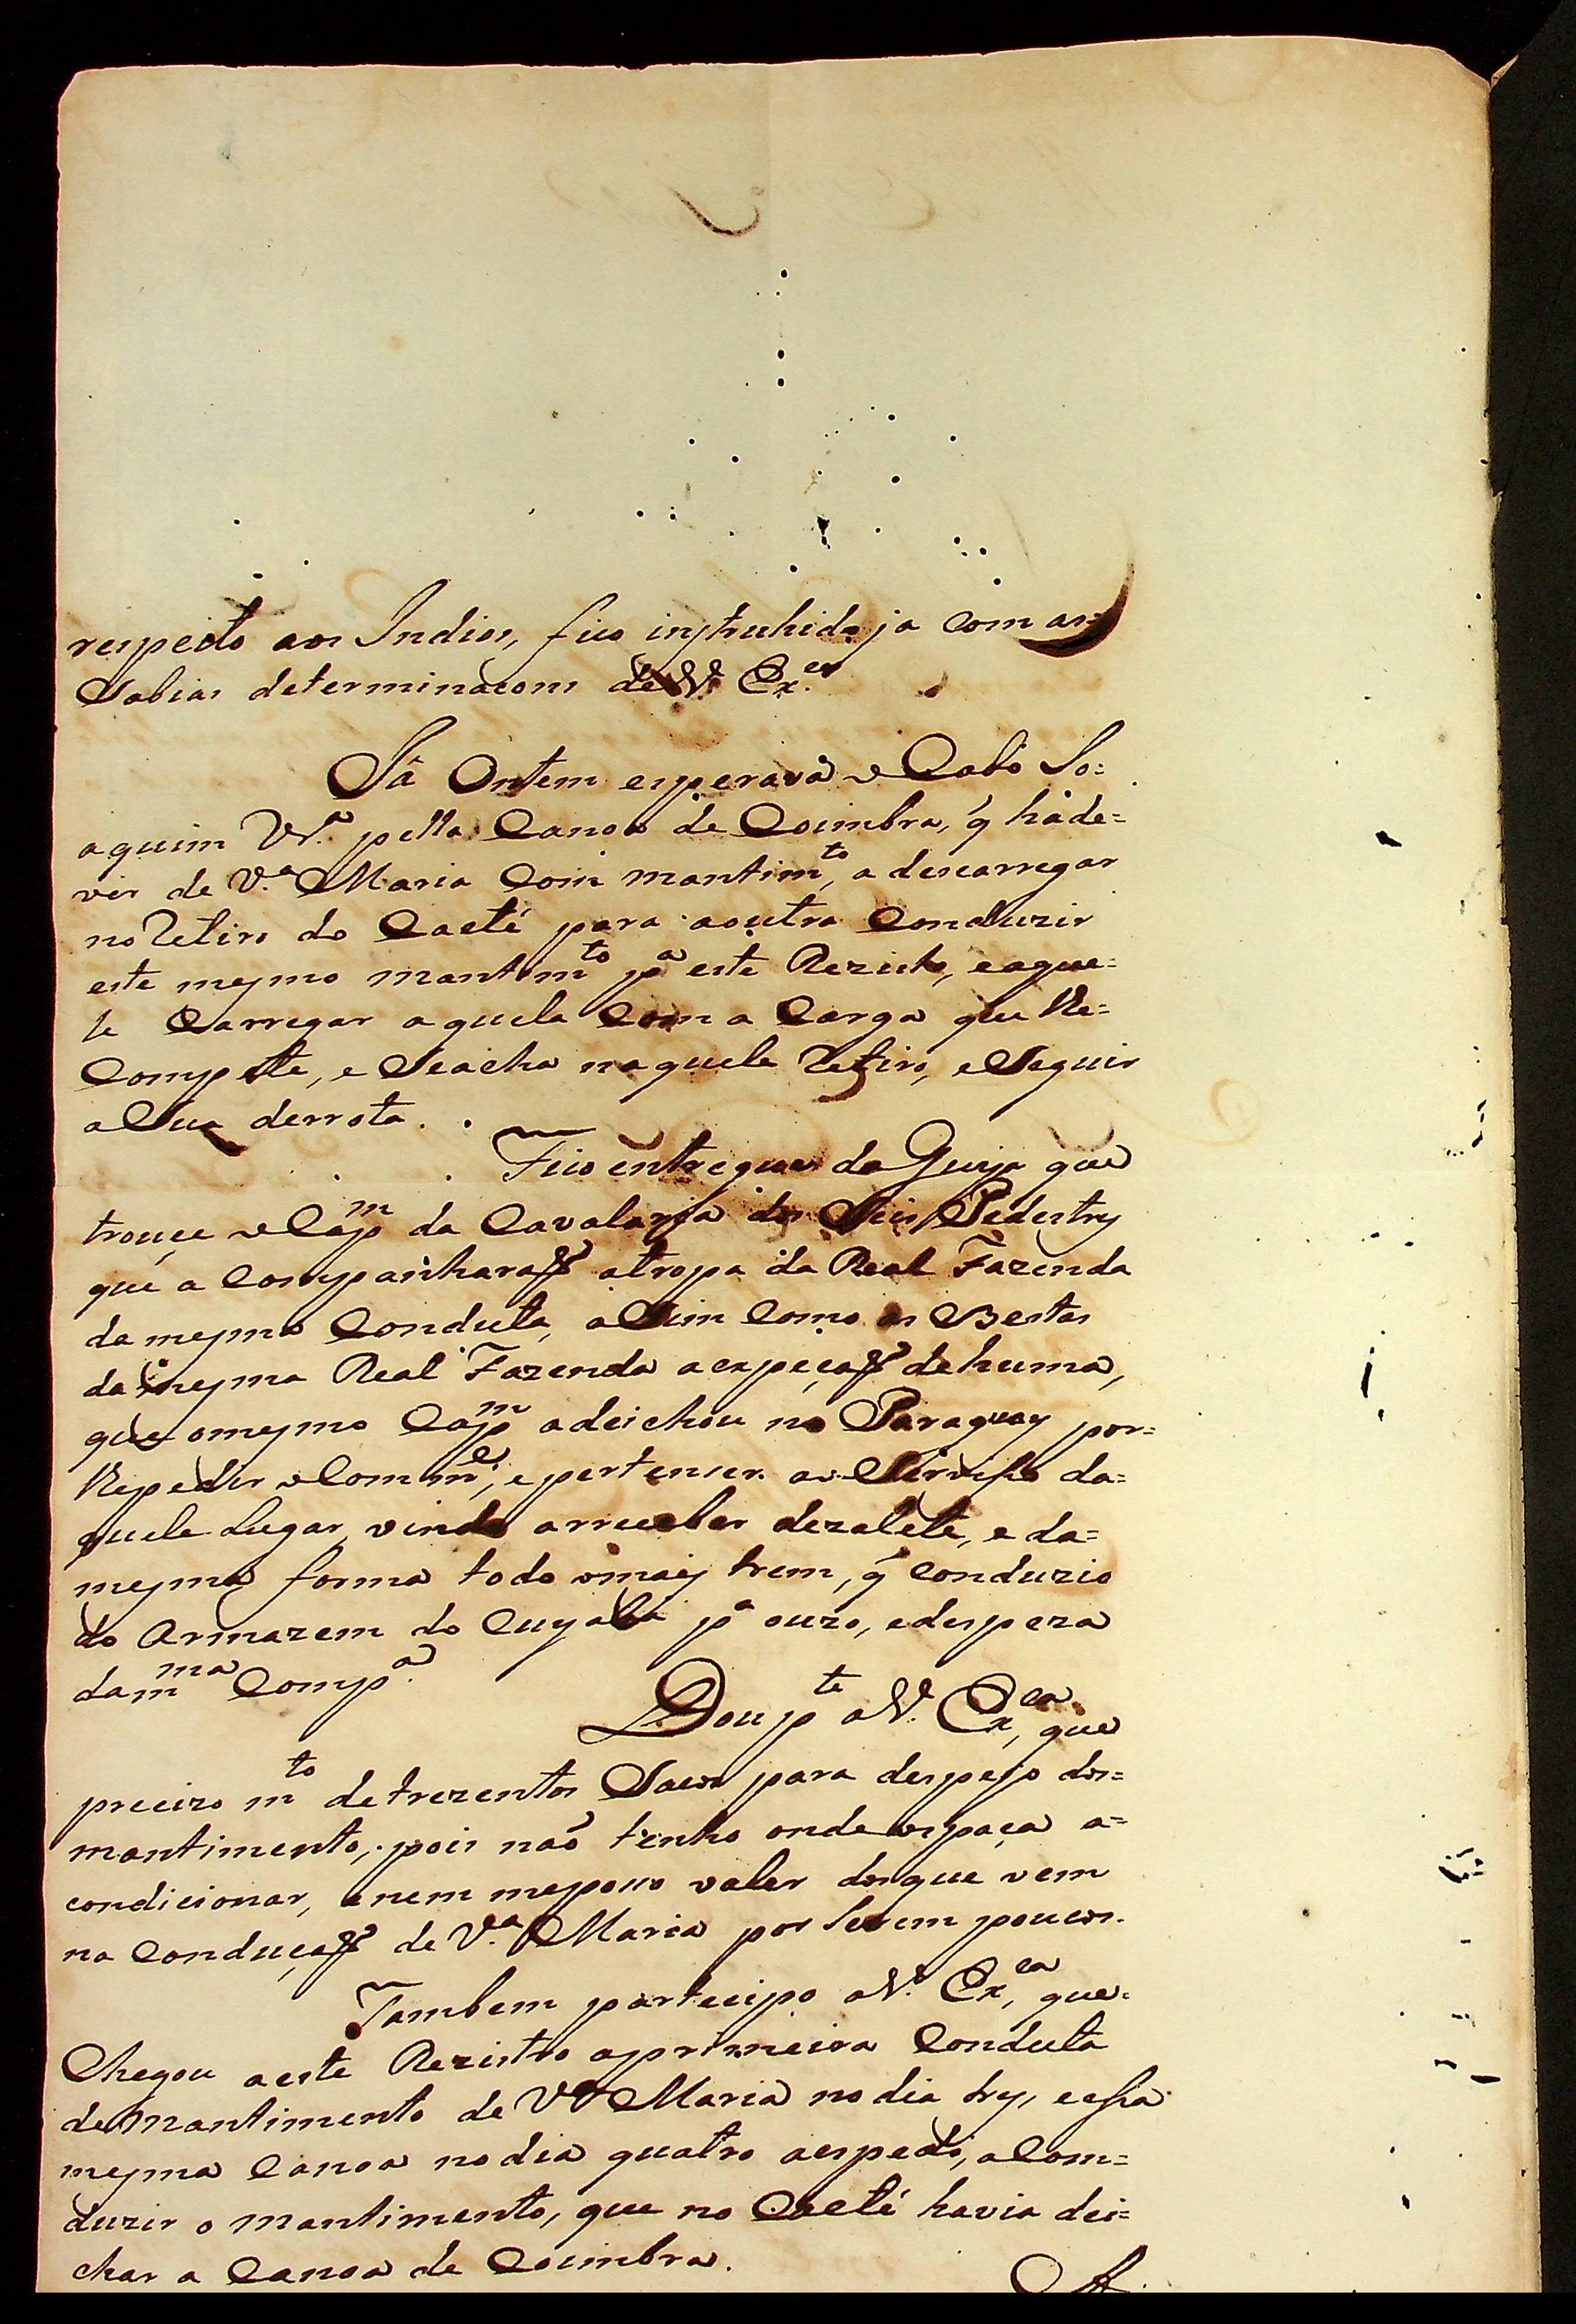 respeito aos Indios, fico instruhido ja com as
Sabias determinacons de V. Ex.ca
Já Ontem esperava o Cabo Jo=
aquim Vr.a pella Canoa de Coimbra, q̃háde=
vir de V.a Maria Com mantim.to, a descarregar
no Retiro do Caeté para aoutra Conduzir
este mesmo mantim.to p.a este Rezisto, eaque=
le Carregar aquela Com a Carga que lhe=
Compette, e Seacha naquele Retiro, eSeguir
aSua derrota.
Fico entregue da Guya que
trouce o Cap.m da Cavalaria dos Seis Pedestres
que a Companharaõ atropa da Real Fazenda
da mesma Conduta, aSim Como as Bestas
da mesma Real Fazenda aexpeçaõ dehuma,
que omesmo Cap.m adeichou no Paraguay por=
lhepedir o Com.me, epertenser ao Serviso da=
quele Lugar, vindo arreceber dezasete, e da=
mesma forma todo omais trem, q̃ Conduzio
do Armazem do Cuyabá p.a ouzo, edespeza
dam.ma Comp.a
Dou p.te aV. Ex.ca, que
precizo m.to detrezentos Sacos para despejo dos=
mantimento, pois naõ tenho onde ospaça a=
condicionar, enem meposso valer dosque vem
na Conduçaõ de V.a Maria por Serem poucos.
Tambem partecipo aV. Ex.ca, que=
Chegou aeste Rezistro aprimeira Conduta
demantimento de V.a Maria nodia trez, eessa
mesma Canoa nodia quatro aespedi, aCom=
duzir o mantimento, que no Caeté havia dei=
char a Canoa de Coimbra.